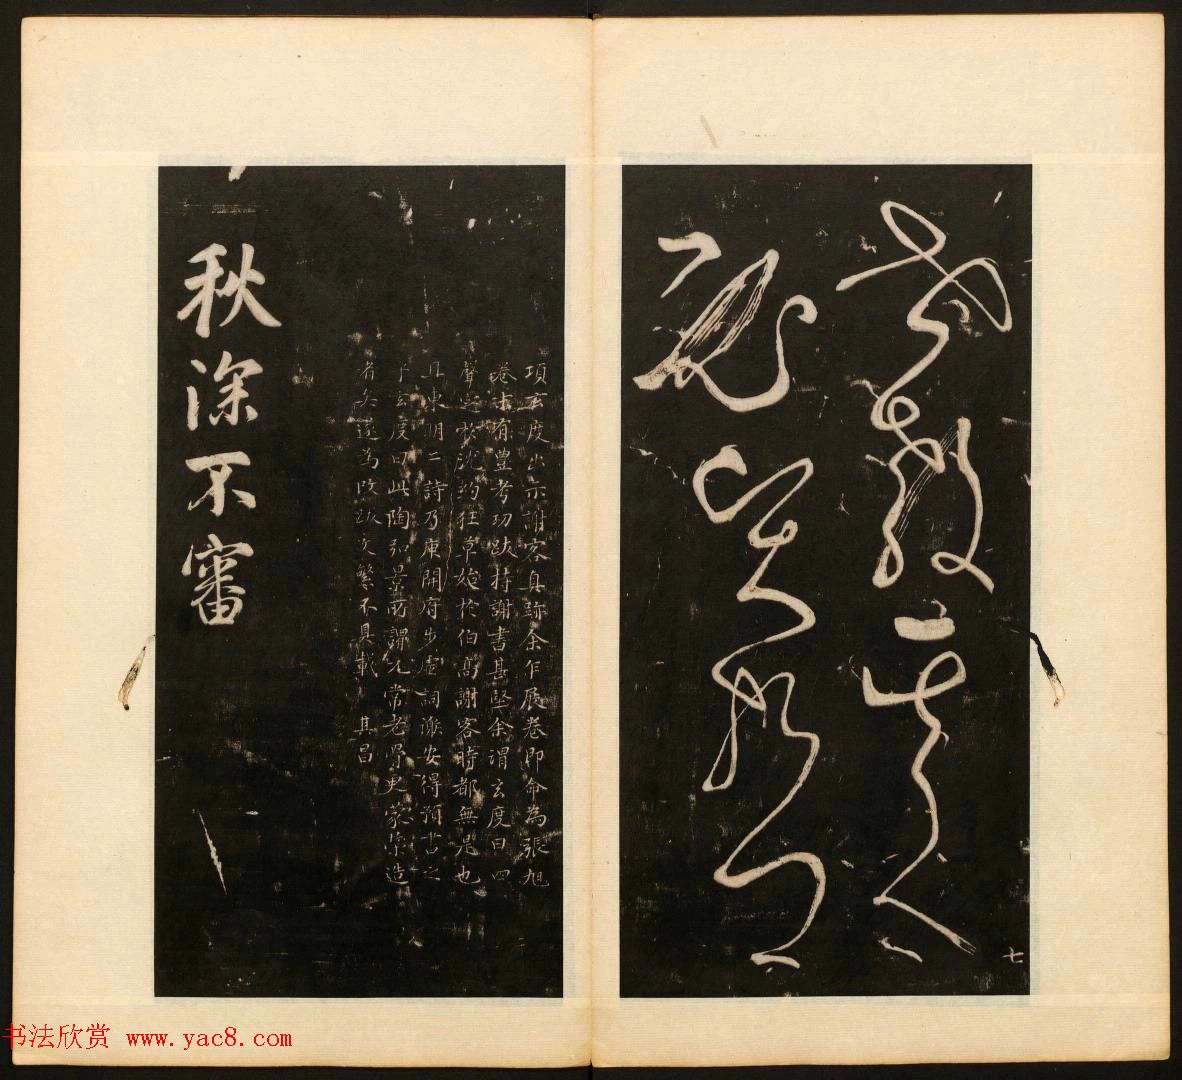 世教其人
必賢哲
七
項玄度出示謝客真跡余乍展卷即命為張旭
卷末有豐考功跋持謝書甚堅余謂玄度曰四
聲定於沈約狂草始於伯高謝客時都無是也
且東明二詩乃庾開府步虛詞謝安得預書之
乎玄度曰此陶弘景所謂元常老骨更蒙榮造
者矣遂為改跋文繁不具載 其昌
秋深不審
书法欣赏 www.yac8.com